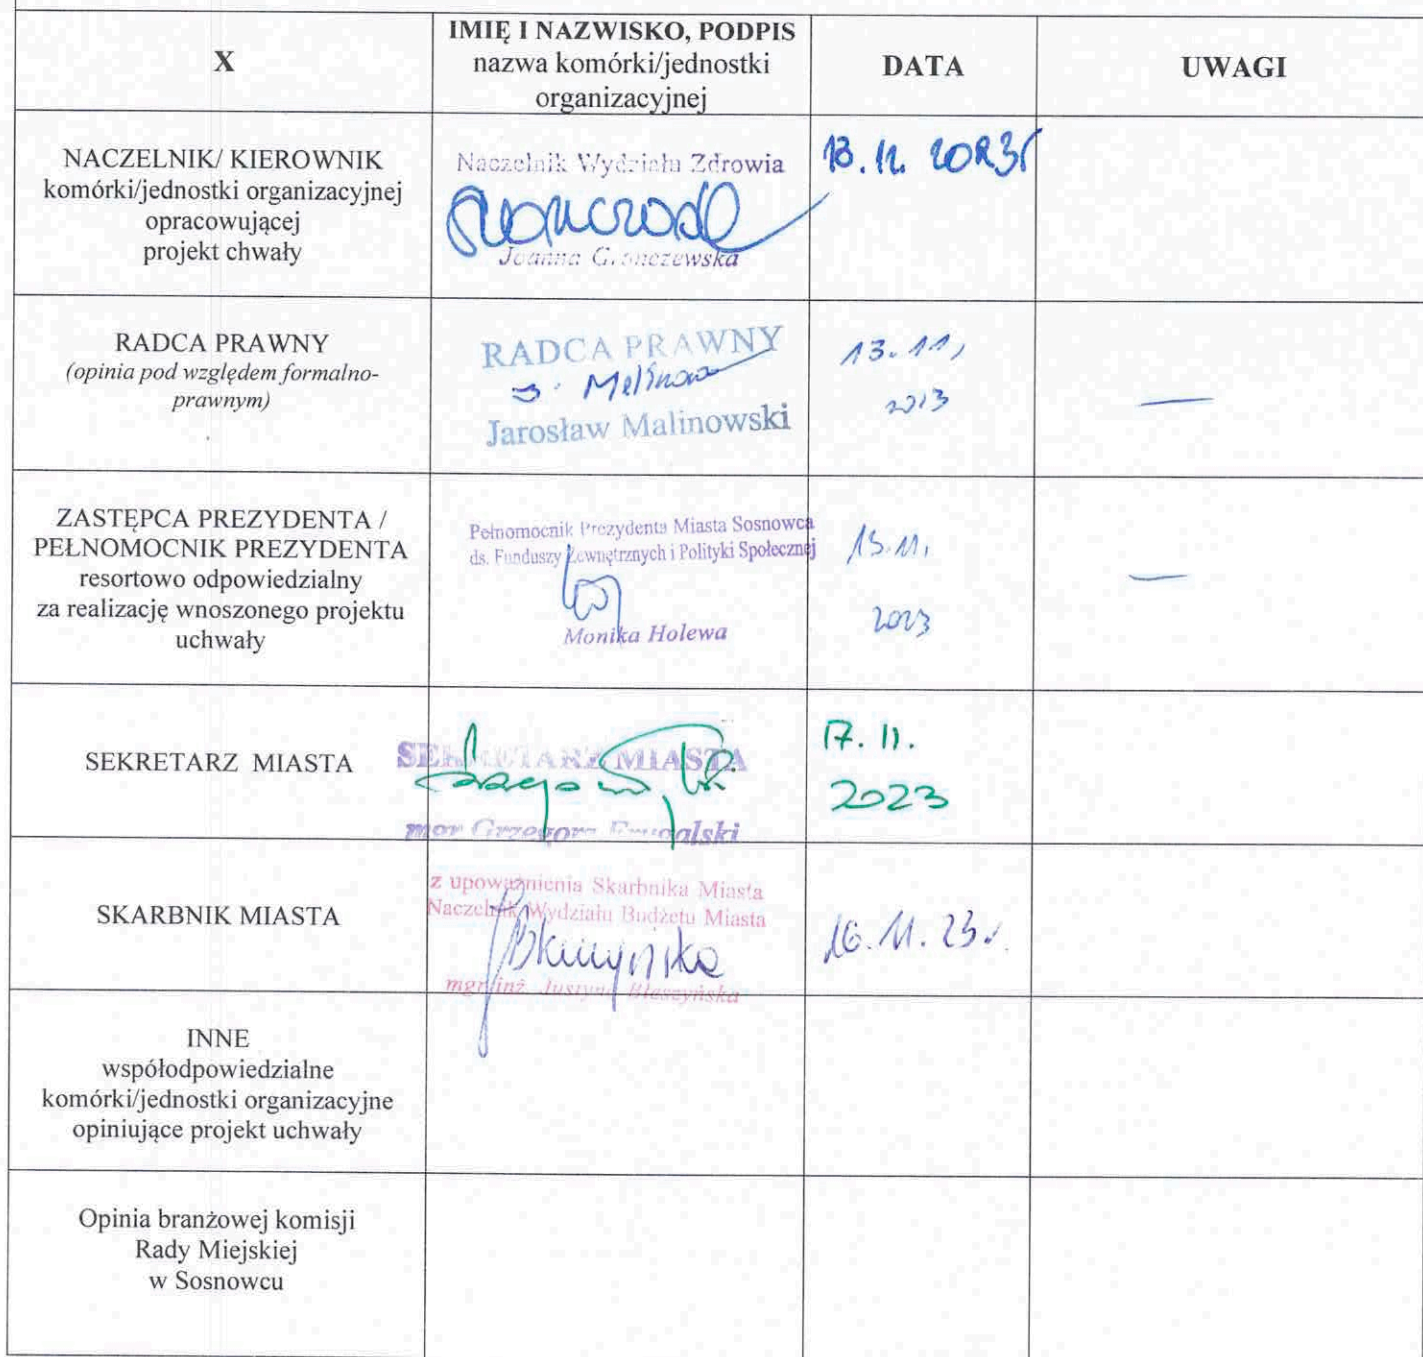 X
IMIĘ I NAZWISKO, PODPIS
nazwa komórki/jednostki
organizacyjnej
DATA
UWAGI
NACZELNIK/ KIEROWNIK
komórki/jednostki organizacyjnej
opracowującej
projekt chwały
Naczelnik Wydziału Zdrowia
Joanna
13.11.2023r
RADCA PRAWNY
(opinia pod względem formalno-
prawnym)
RADCA PRAWNY
Jarosław Malinowski
13.11,
2023
—
ZASTĘPCA PREZYDENTA /
PEŁNOMOCNIK PREZYDENTA
resortowo odpowiedzialny
za realizację wnoszonego projektu
uchwały
Pełnomocnik Prezydenta Miasta Sosnowca
ds. Funduszy Zewnętrznych i Polityki Społecznej
Monika Holewa
15.11,
2023
—
SEKRETARZ MIASTA
SEKRETARZ MIASTA
mgr Grzegorz
17.11.
2023
SKARBNIK MIASTA
z upoważnienia Skarbnika Miasta
Naczelnik Wydziału Budżetu Miasta
mgr inż. Justyna Błeszyńska
16.11.23r.
INNE
współodpowiedzialne
komórki/jednostki organizacyjne
opiniujące projekt uchwały
Opinia branżowej komisji
Rady Miejskiej
w Sosnowcu